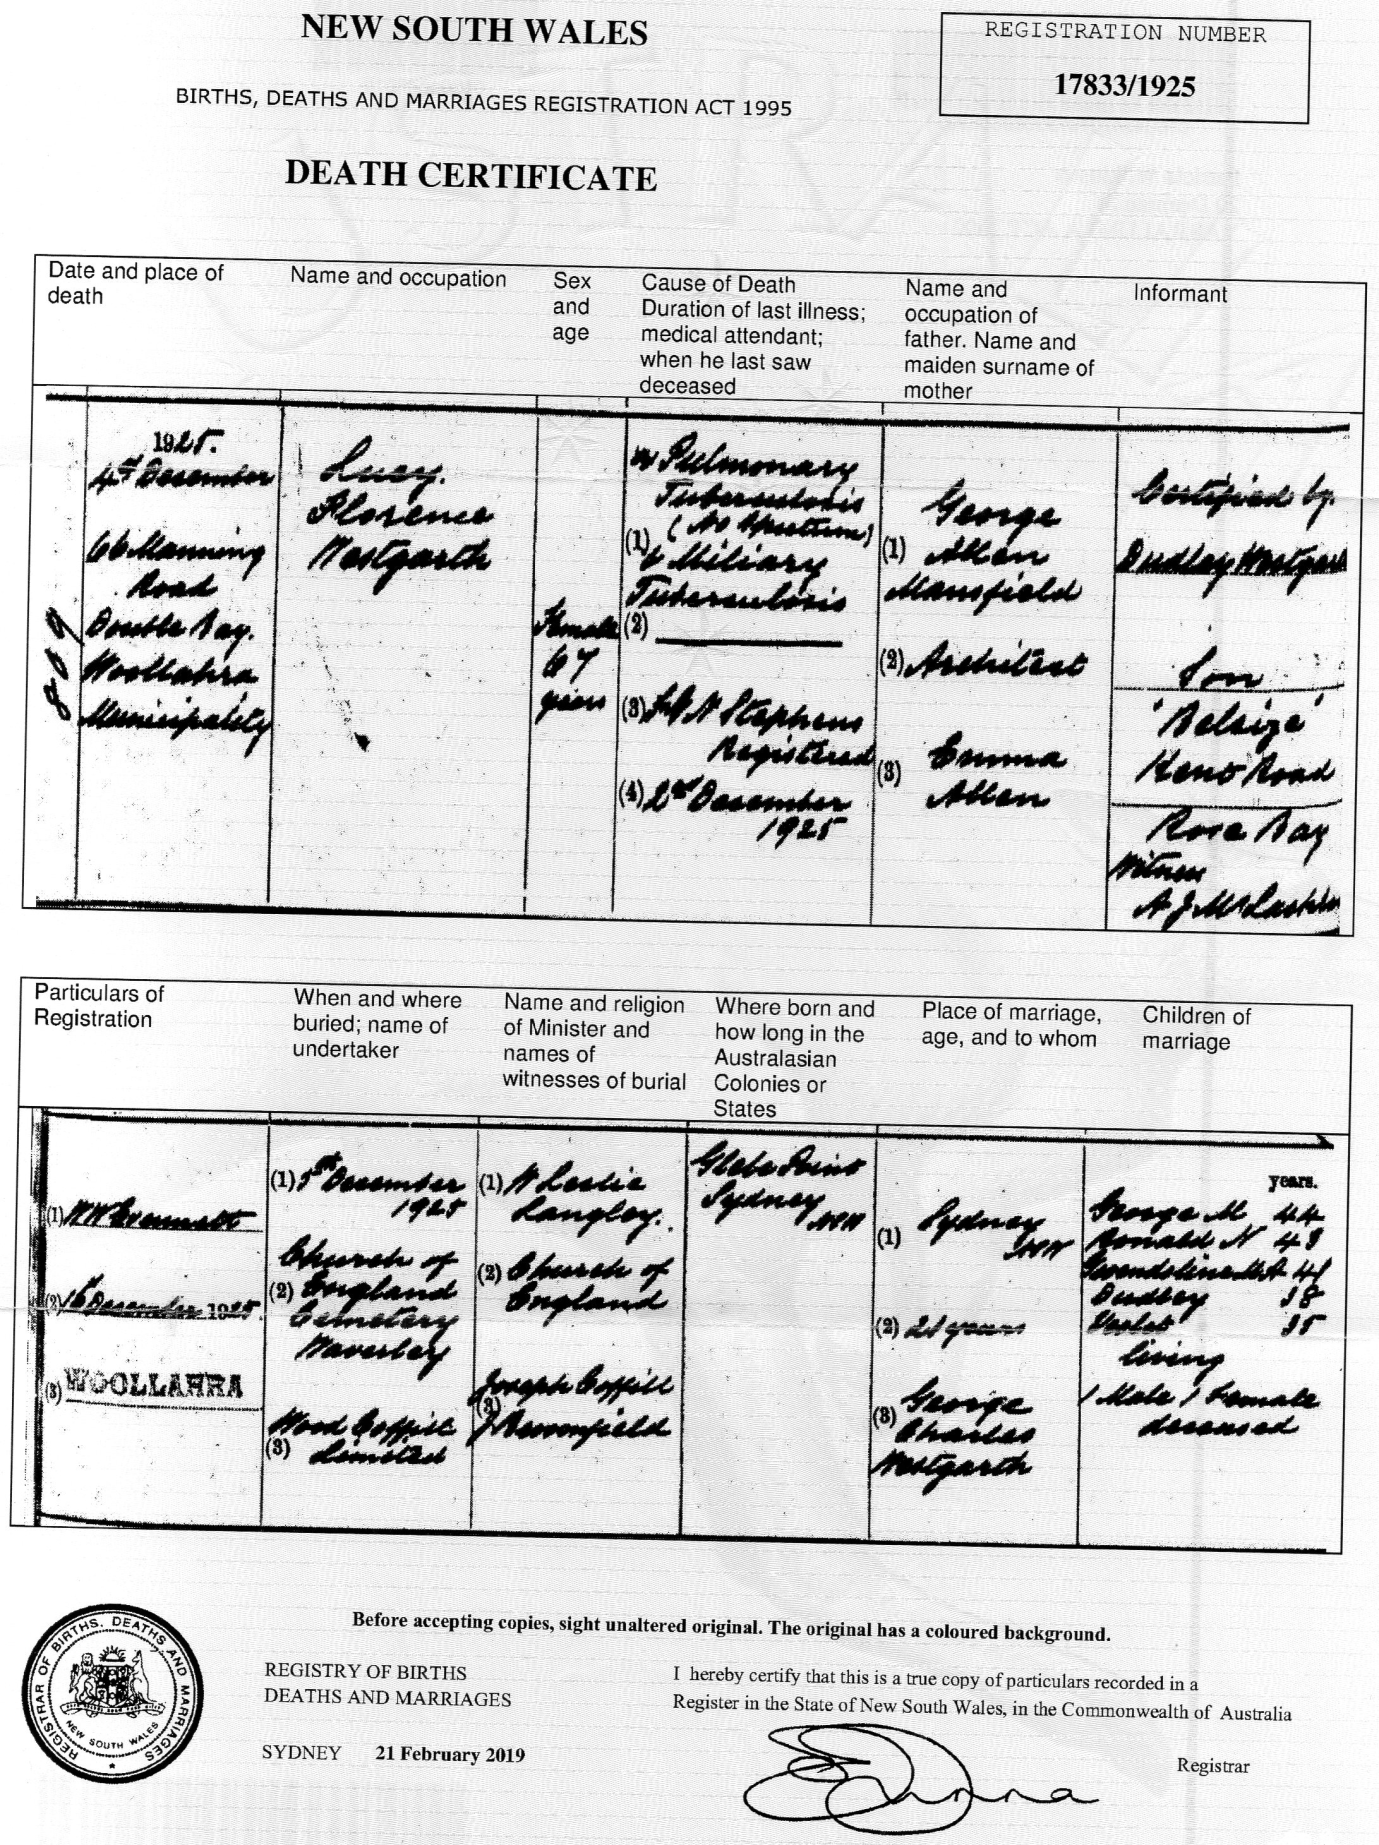 NEW SOUTH WALES
REGISTRATION NUMBER
17833/1925
BIRTHS, DEATHS AND MARRIAGES REGISTRATION ACT 1995
DEATH CERTIFICATE
Date and place of
death
Name and occupation
Sex
and
age
Cause of Death
Duration of last illness;
medical attendant;
when he last saw
deceased
Name and
occupation of
father. Name and
maiden surname of
mother
Informant
809
1925.
4th December
66 Manning
Road
Double Bay.
Woollahra
Municipality
Lucy.
Florence
Westgarth
Female
67
years
Pulmonary
Tuberculosis
(No Sputum)
(1)
Miliary
Tuberculosis
(2)
(3) Stephens
Registered
(4) 2nd December
1925
George
(1) Allen
Mansfield
(2) Architect
(3) Emma
Allen
Certified by
Dudley Westgarth
Son
'Belsize'
Road
Rose Bay
Witness
A J
Particulars of
Registration
When and where
buried; name of
undertaker
Name and religion
of Minister and
names of
witnesses of burial
Where born and
how long in the
Australasian
Colonies or
States
Place of marriage,
age, and to whom
Children of
marriage
(1)
(2) December 1925.
(3) WOOLLAHRA
(1) 5th December
1925
Church of
(2) England
Cemetery
Waverley
Wood Coffill
(3) Limited
(1) Leslie
Langley.
(2) Church of
England
Joseph Coffill
(3)
Glebe Point
Sydney
NSW
(1) Sydney
NSW
(2) 21 years
(3) George
Charles
Westgarth
years.
George M 44
Ronald N 43
Gwendoline M A 41
Dudley 38
Violet 35
living
1 Male 1 Female
deceased
Before accepting copies, sight unaltered original. The original has a coloured background.
REGISTRAR OF BIRTHS, DEATHS AND MARRIAGES
NEW SOUTH WALES
REGISTRY OF BIRTHS
DEATHS AND MARRIAGES
SYDNEY 21 February 2019
I hereby certify that this is a true copy of particulars recorded in a
Register in the State of New South Wales, in the Commonwealth of Australia
Registrar